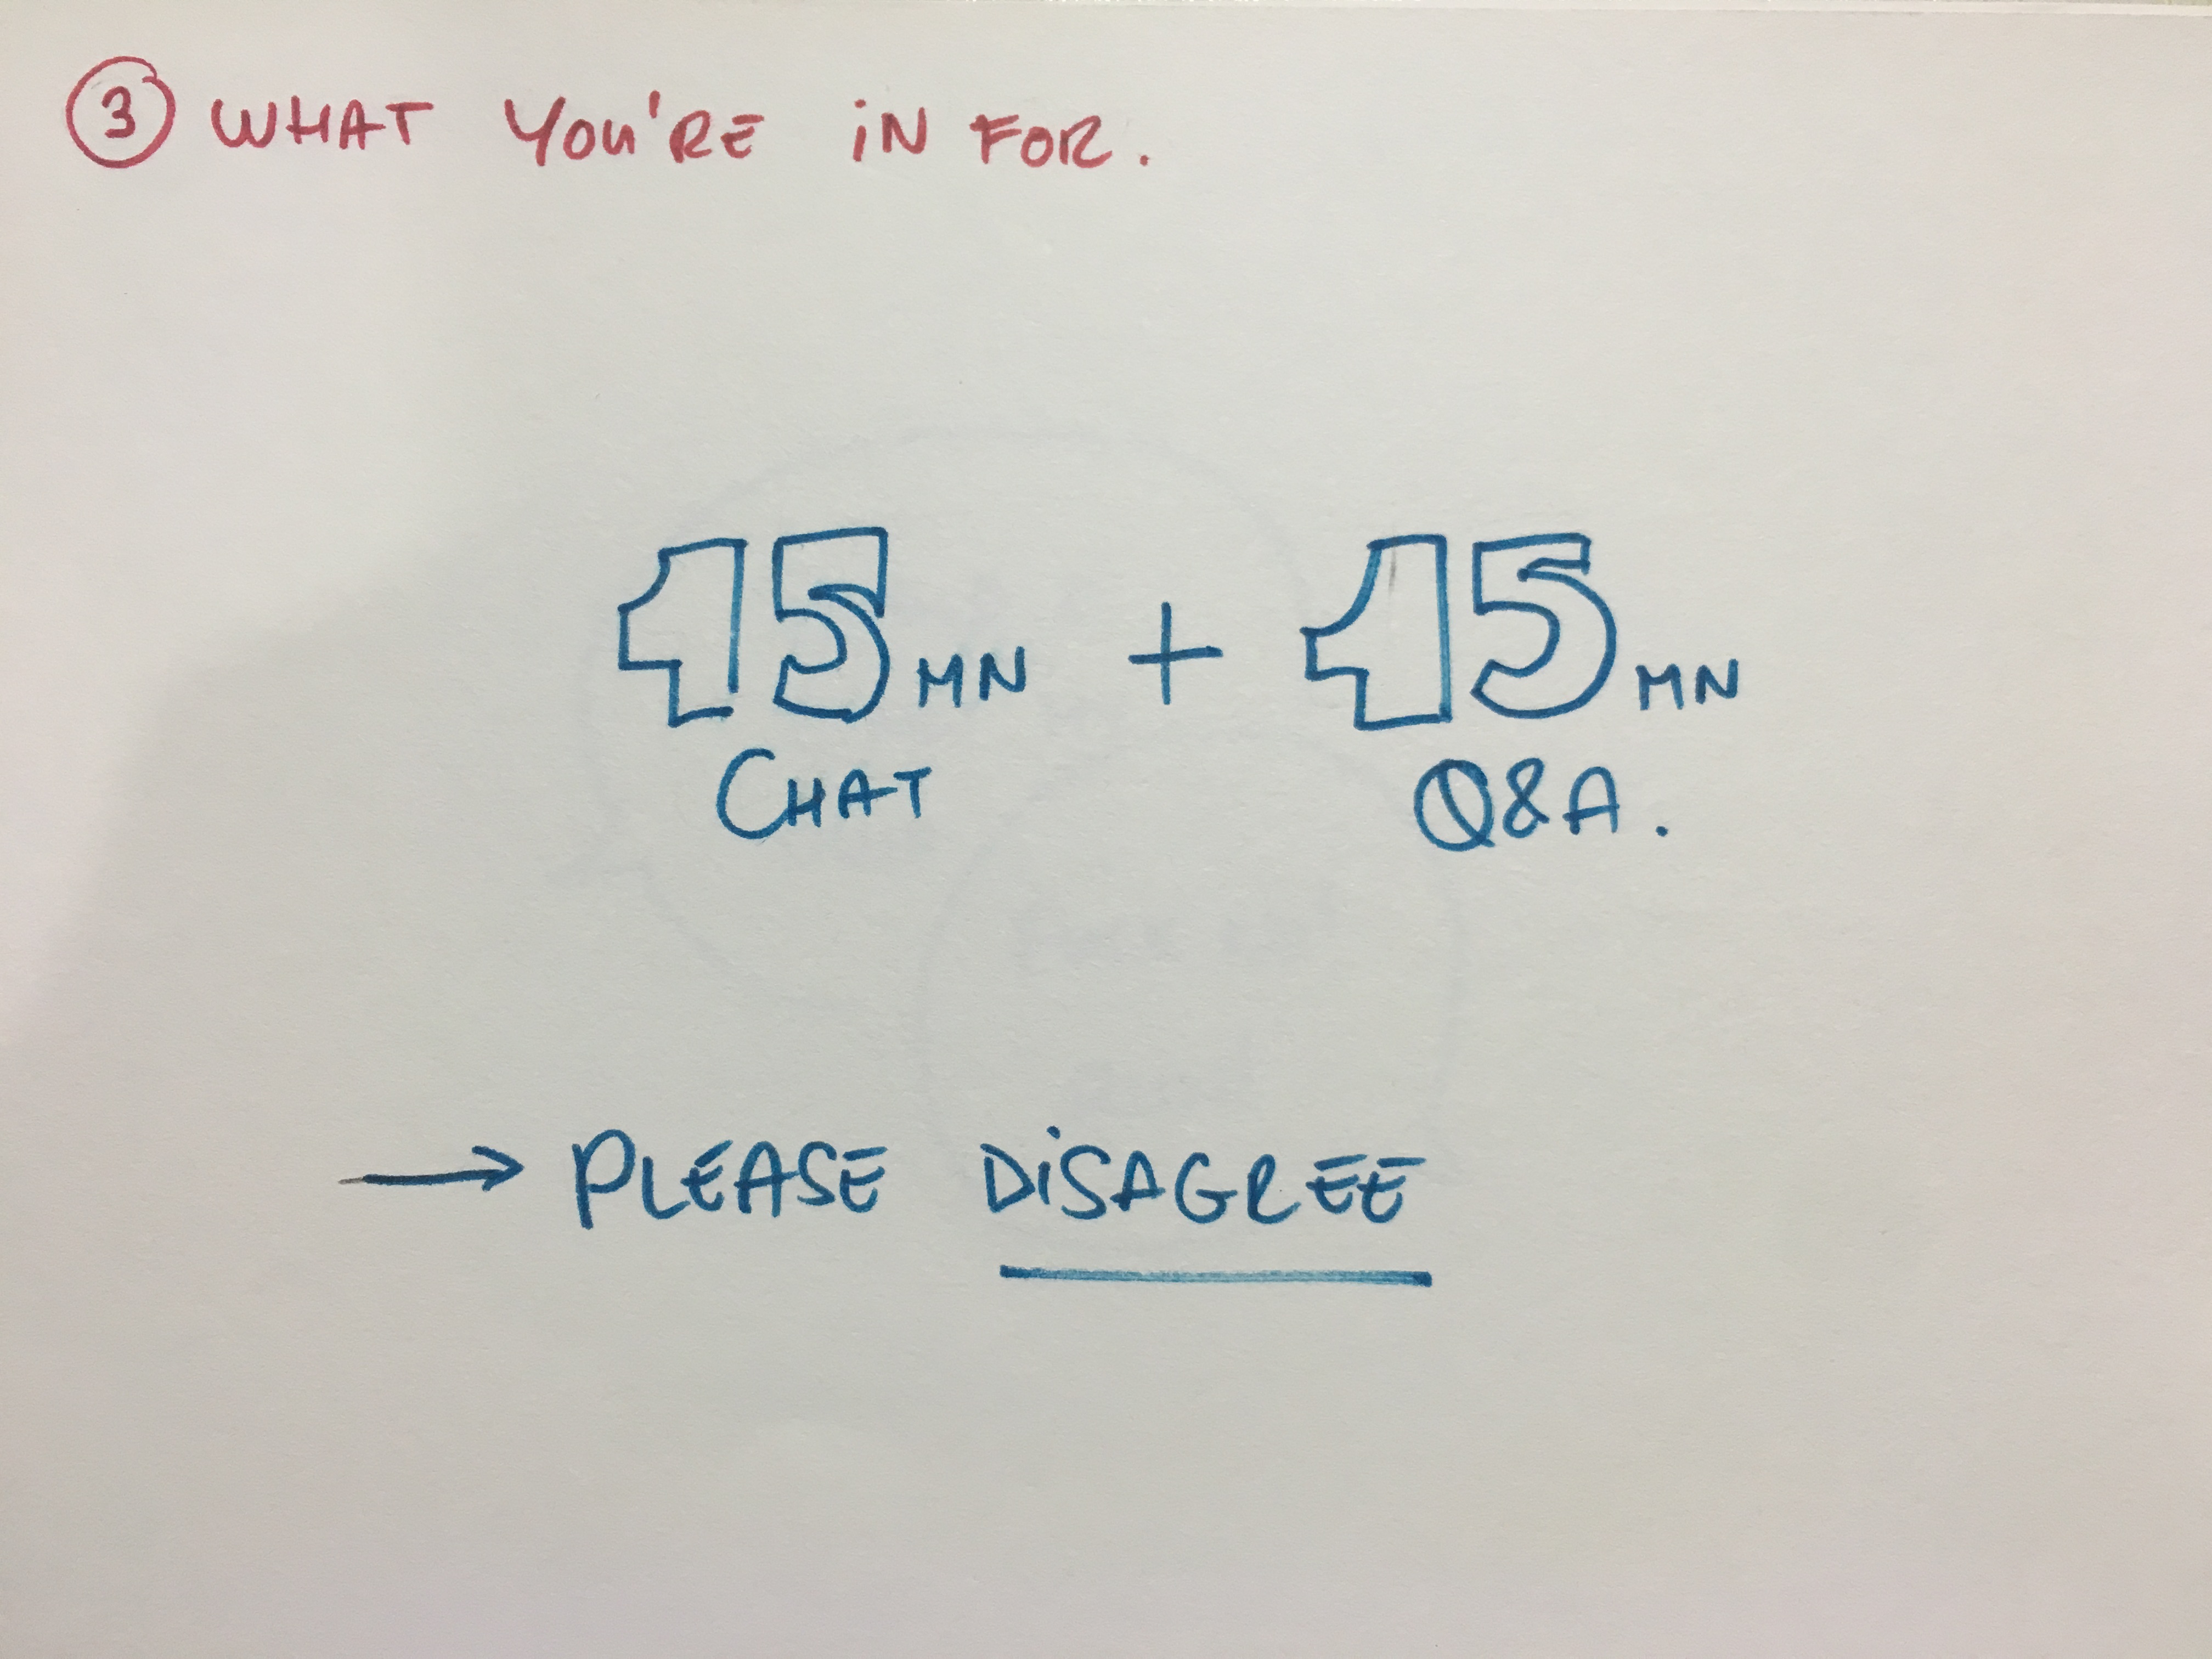 3 WHAT YOU'RE iN FOR.
15 MN + 15 MN
CHAT Q&A.
→ PLEASE DiSAGREE